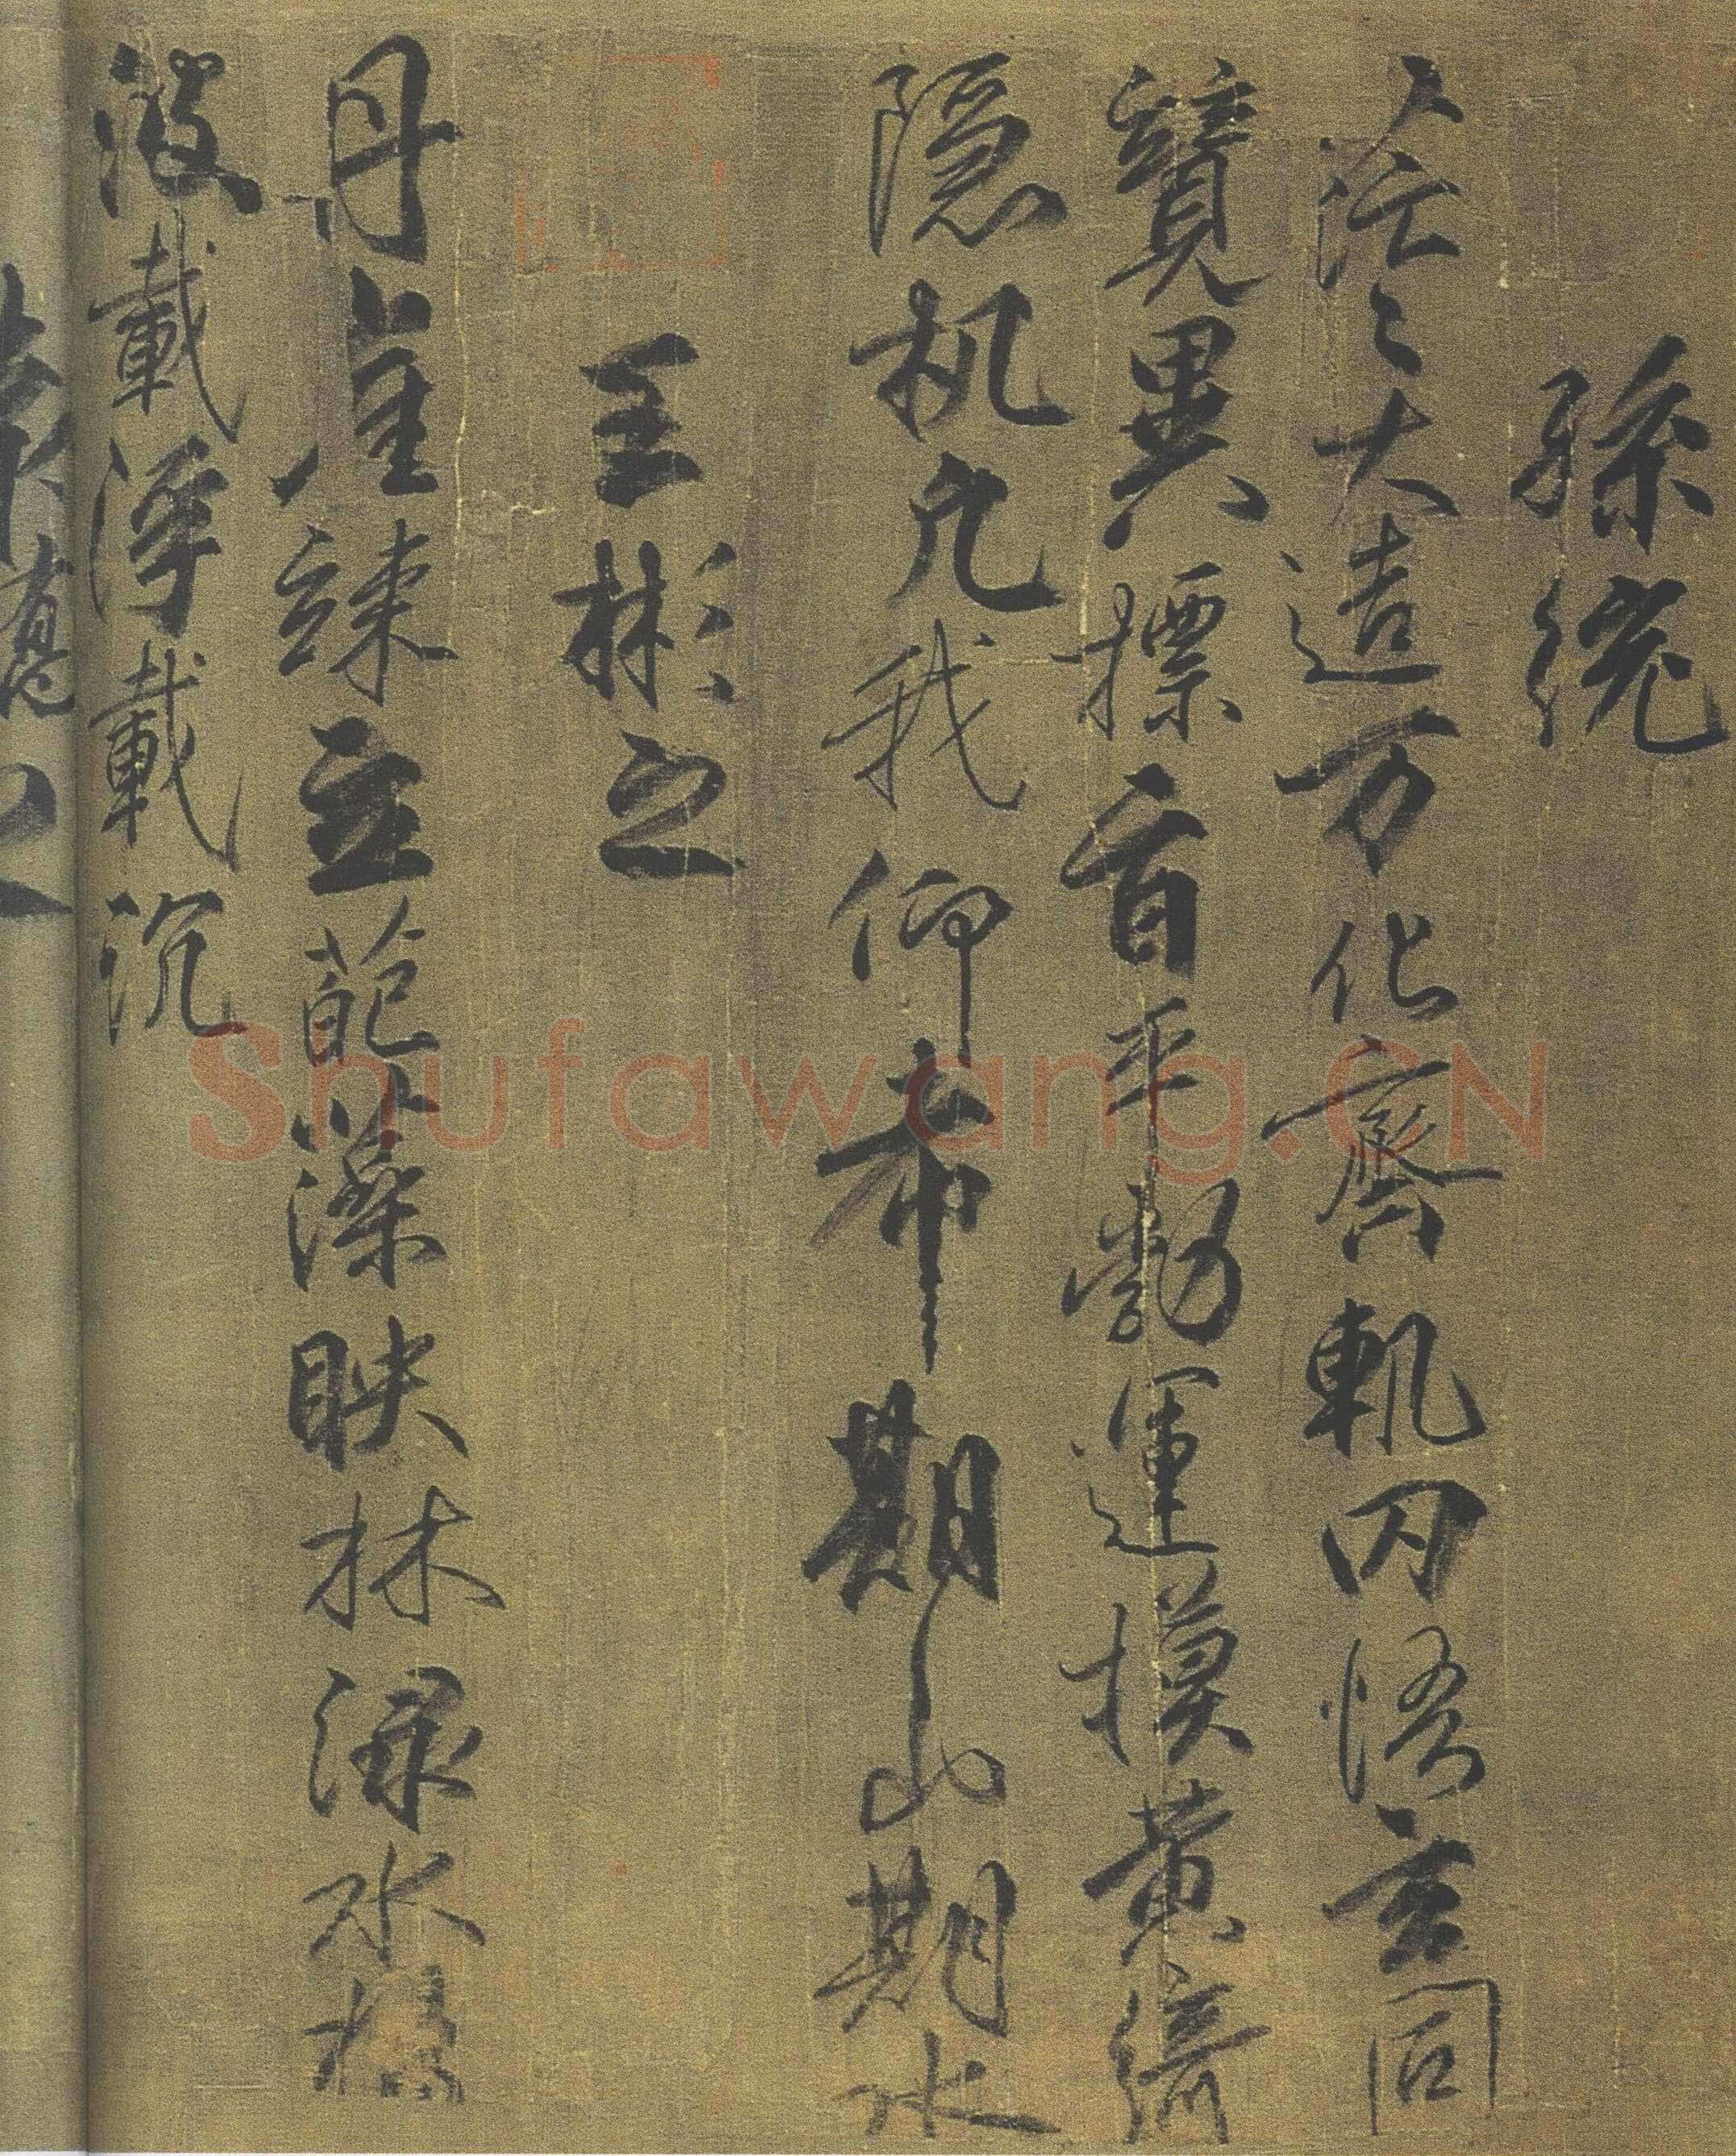 孫統
茫〻大造万化齊軌罔悟玄同
競異摽旨平勃運摸黄綺
隱机凢我仰希期山期水
王彬之
丹崖竦立葩藻映林渌水揚
波載浮載沉
Shufawang.CN